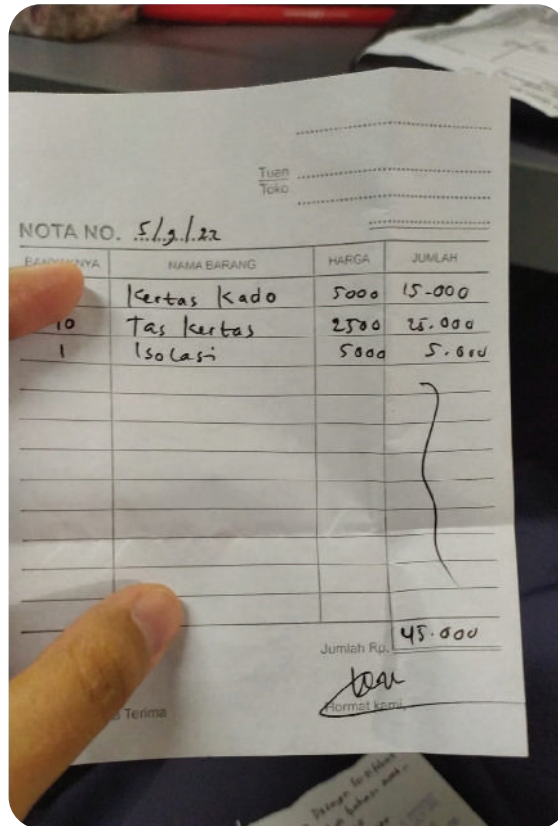 Tuan
Toko
NOTA NO. 5/9/22
NAMA BARANG HARGA JUMLAH
Kertas Kado 5000 15-000
10 Tas Kertas 2500 25.000
1 Isolasi 5000 5.000
Jumlah Rp. 45.000
Terima
Hormat kami,